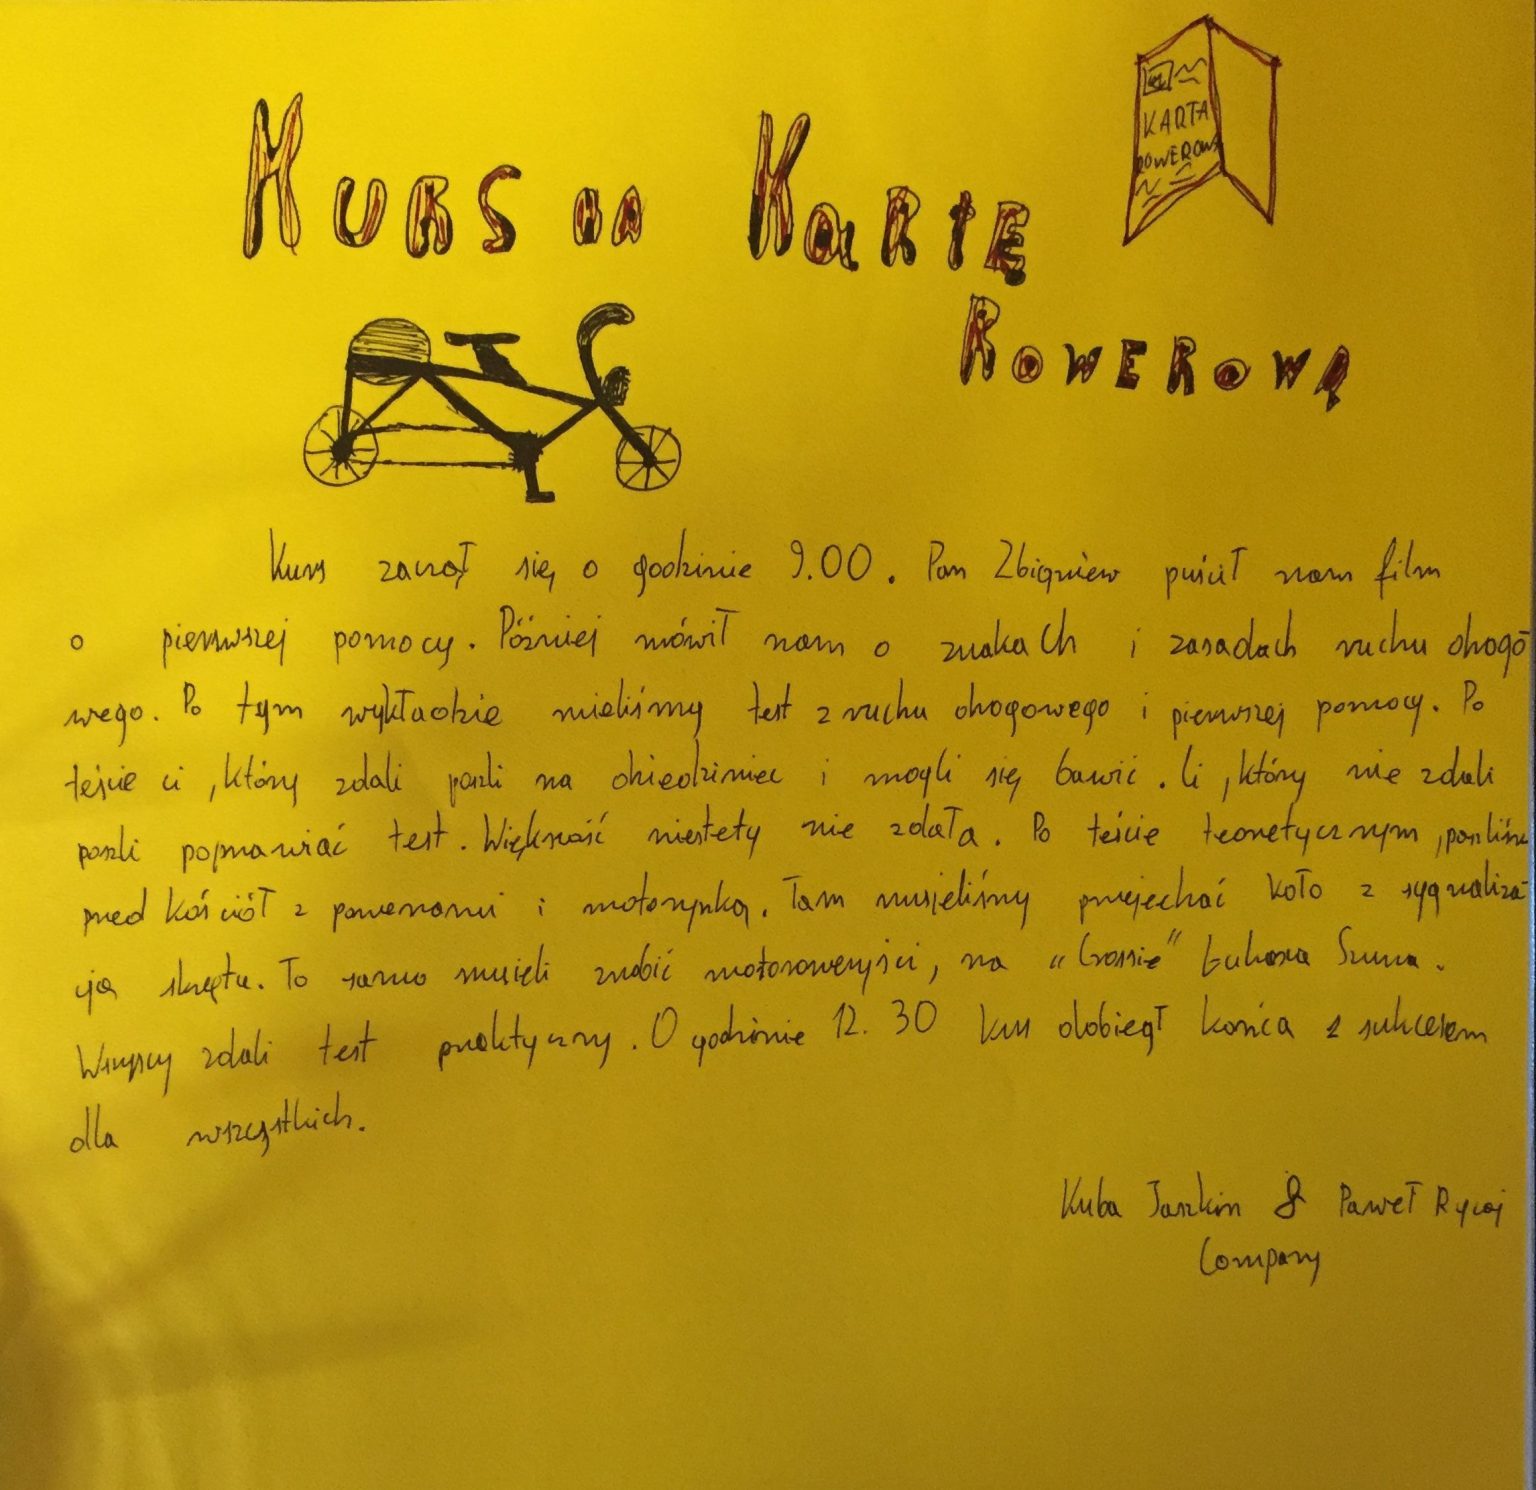 Kurs na Kartę
KARTA
ROWEROWA
Rowerową
Kurs zaczął się o godzinie 9.00. Pan Zbigniew puścił nam film
o pierwszej pomocy. Później mówił nam o znakach i zasadach ruchu drogo
wego. Po tym wykładzie mieliśmy test z ruchu drogowego i pierwszej pomocy. Po
teście ci, którzy zdali poszli na dziedziniec i mogli się bawić. Ci, którzy nie zdali
poszli poprawiać test. Większość niestety nie zdała. Po teście teoretycznym, poszliśmy
przed kościół z rowerami i motorynką. Tam musieliśmy przejechać koło z sygnaliza-
cją skrętu. To samo musieli zrobić motorowerzyści, na "Crossie" Łukasza
Wszyscy zdali test praktyczny. O godzinie 12.30 kurs dobiegł końca z sukcesem
dla wszystkich.
Kuba & Paweł
Company